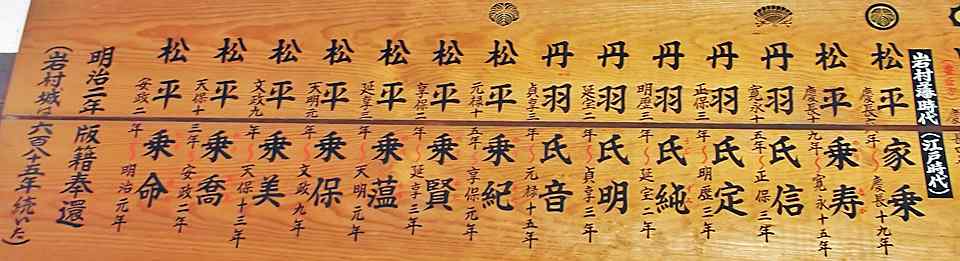 岩村藩時代（江戸時代）
松平家乗
慶長十九年
松平乗寿
慶長十九年～寛永十五年
丹羽氏信
寛永十五年～正保三年
丹羽氏定
正保三年～明暦三年
丹羽氏純
明暦三年～延宝二年
丹羽氏明
延宝二年～貞享三年
丹羽氏音
貞享三年～元禄十五年
松平乗紀
元禄十五年～享保元年
松平乗賢
享保二年～延享三年
松平乗薀
延享三年～天明元年
松平乗保
天明元年～文政九年
松平乗美
文政九年～天保十三年
松平乗喬
天保十三年～安政二年
松平乗命
安政二年～明治元年
明治二年　版籍奉還
（岩村城は六百八十五年続いた）